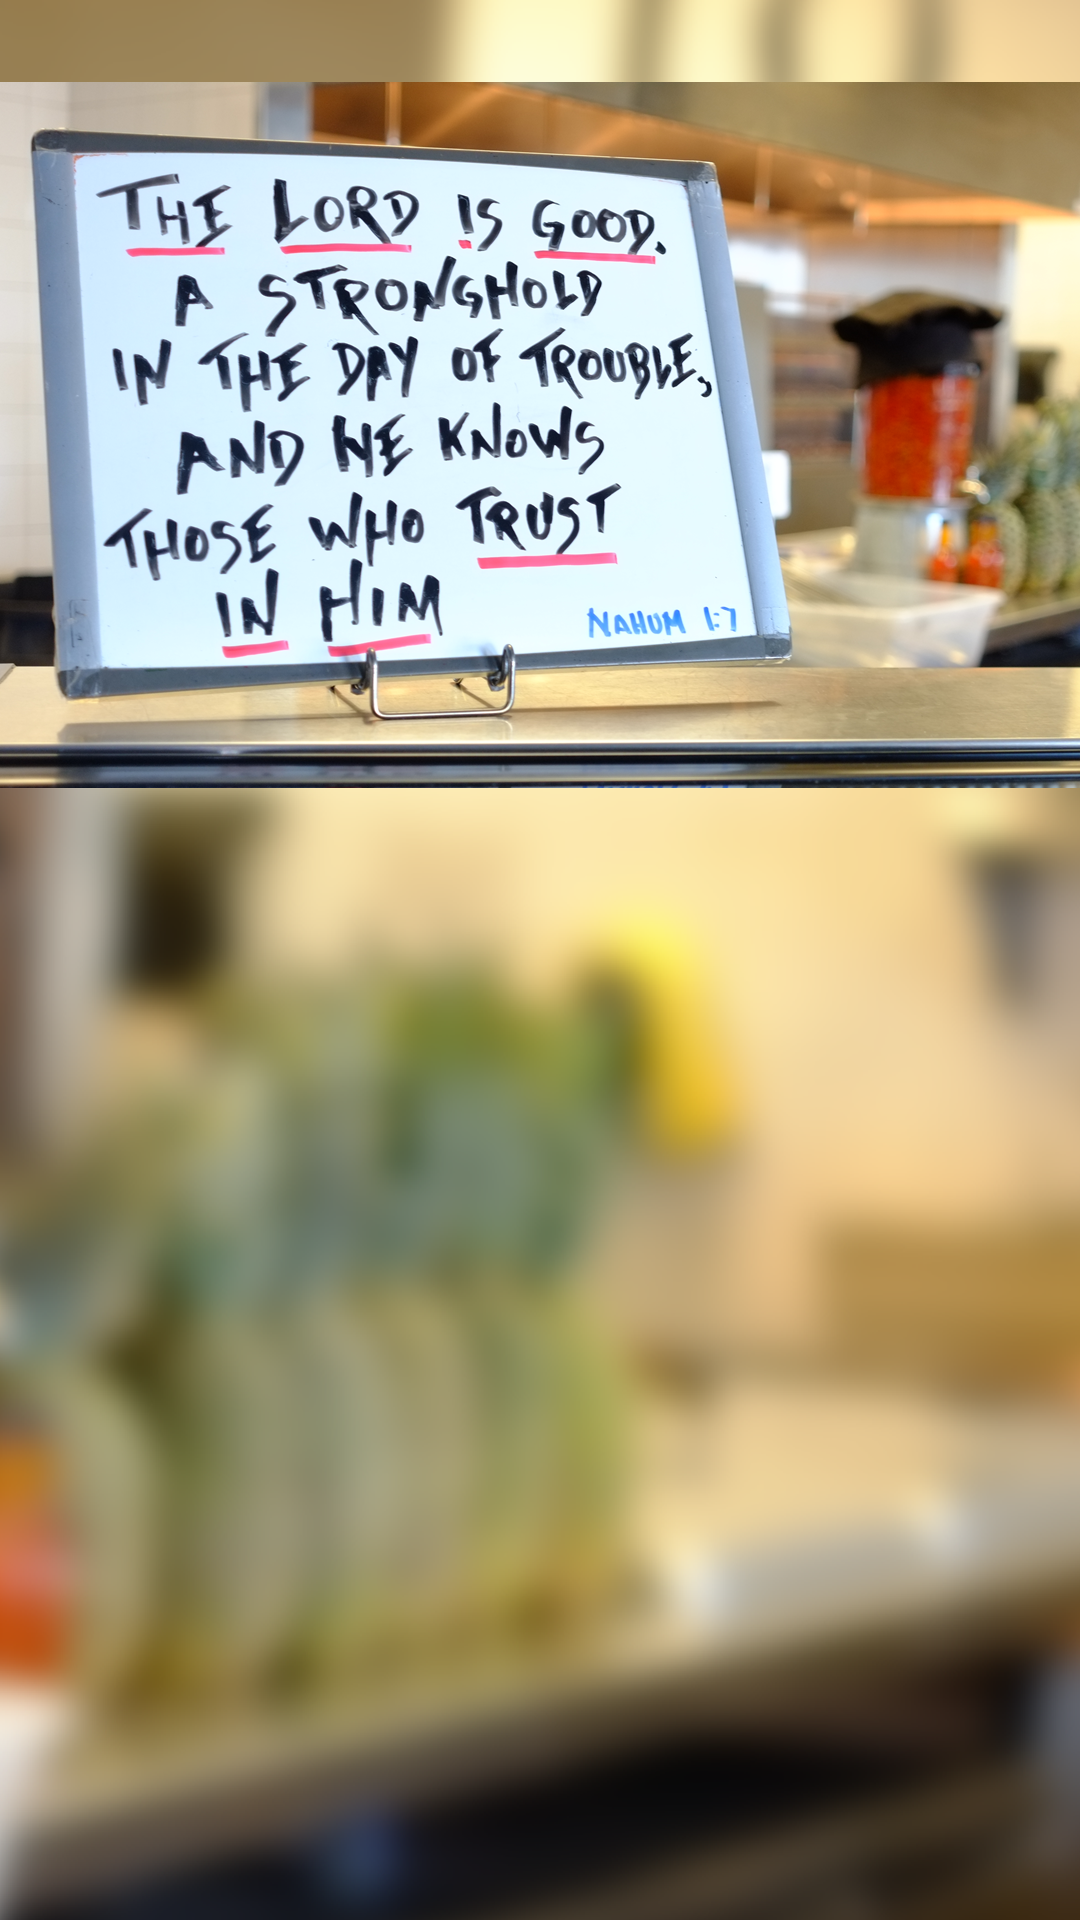 THE LORD IS GOOD.
A STRONGHOLD
IN THE DAY OF TROUBLE,
AND HE KNOWS
THOSE WHO TRUST
IN HIM
NAHUM 1:7